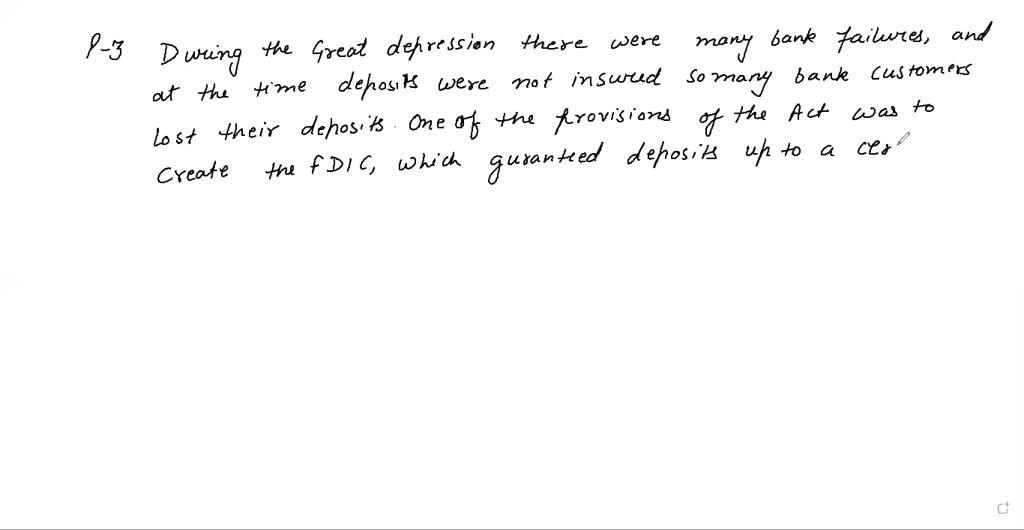 P-3 During the Great depression there were many bank failures, and
at the time deposits were not insured so many bank customers
Lost their deposits. One of the provisions of the Act was to
Create the FDIC, which guranteed deposits up to a cer